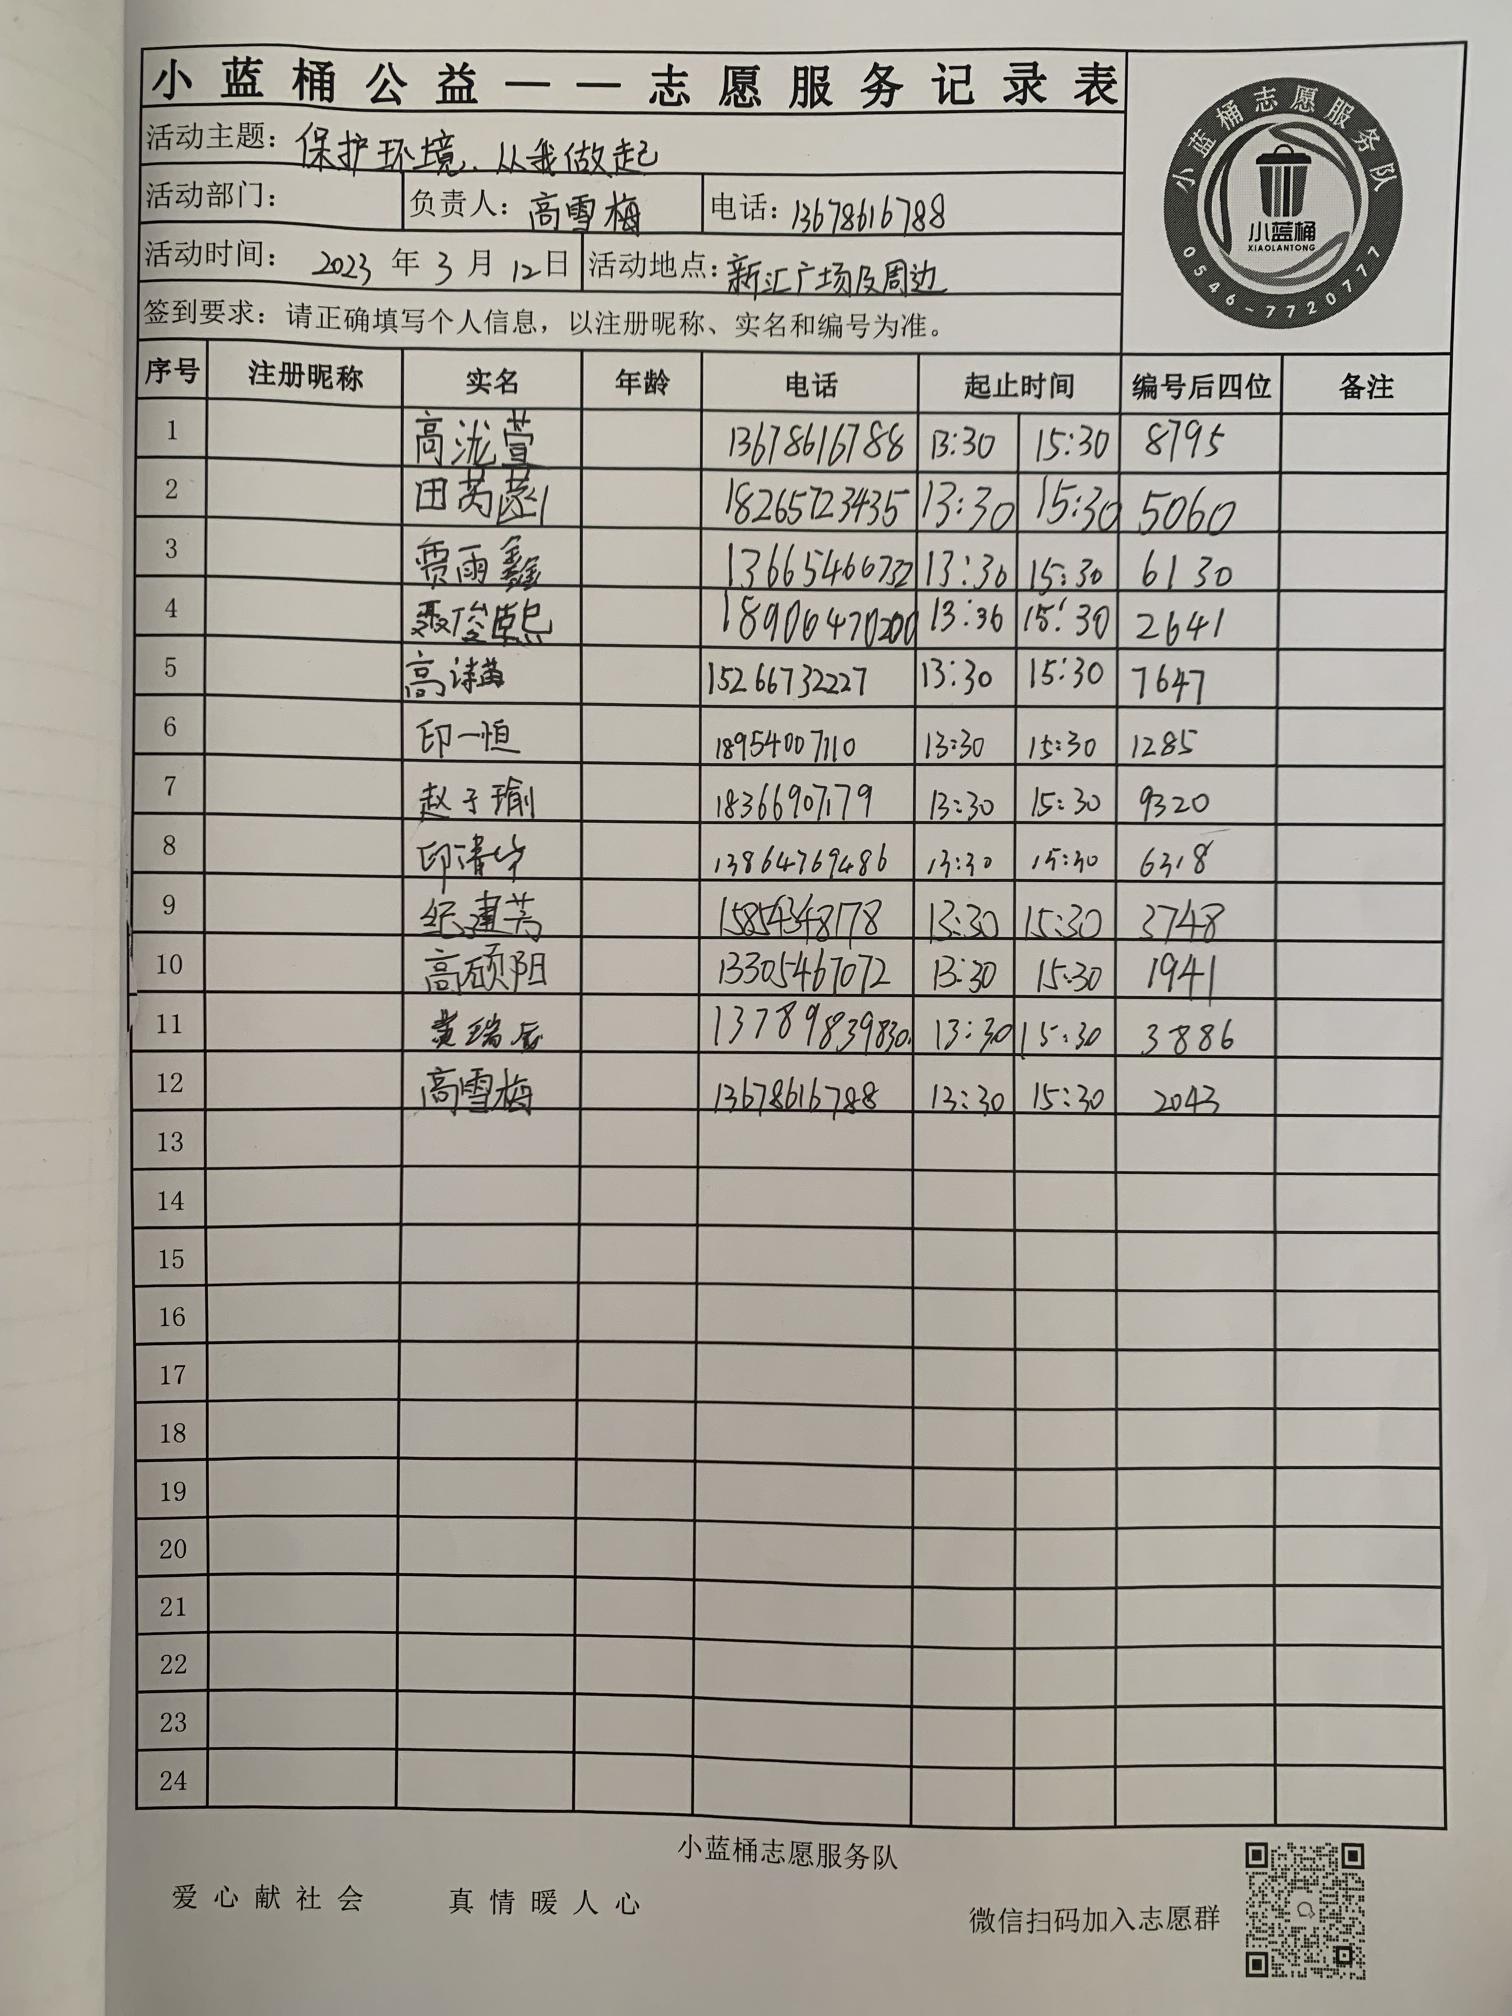 小蓝桶公益——志愿服务记录表
活动主题：保护环境、从我做起
活动部门： 负责人：高雪梅 电话：13678616788
活动时间： 2023 年 3 月 12 日 活动地点：新汇广场及周边
签到要求：请正确填写个人信息，以注册昵称、实名和编号为准。
小蓝桶志愿服务队
小蓝桶
XIAOLANTONG
0546-7720777
序号 注册昵称 实名 年龄 电话 起止时间 编号后四位 备注
1 高泷萱 13678616788 13:30 15:30 8795
2 田芮 18265723435 13:30 15:30 5060
3 贾雨鑫 13665466732 13:30 15:30 6130
4 聂俊熙 18906470200 13:30 15:30 2641
5 高 15266732227 13:30 15:30 7647
6 印一恒 18954007110 13:30 15:30 1285
7 赵子瑜 18366907179 13:30 15:30 9320
8 印清华 13864769486 13:30 15:30 6318
9 纪建芳 15854348178 13:30 15:30 3748
10 高硕阳 13305467072 13:30 15:30 1941
11 黄瑞辰 13789839830 13:30 15:30 3886
12 高雪梅 13678616788 13:30 15:30 2043
13
14
15
16
17
18
19
20
21
22
23
24
小蓝桶志愿服务队
爱心献社会 真情暖人心
微信扫码加入志愿群